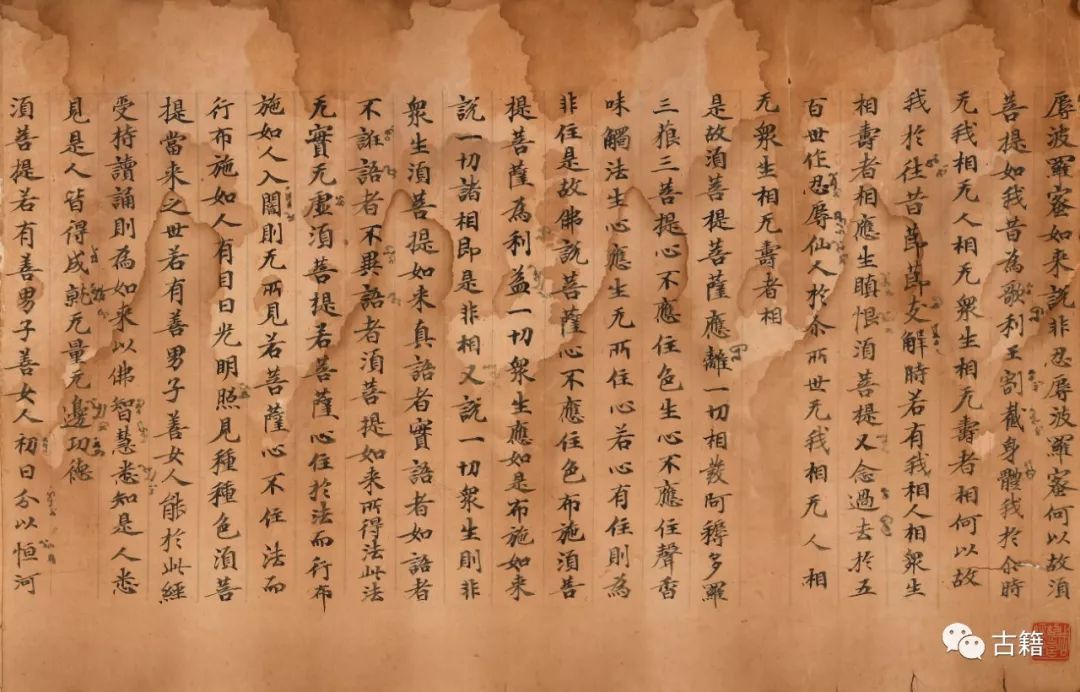 辱波羅蜜如来說非忍辱波羅蜜何以故湏
菩提如我昔為歌利王割截身體我於尒時
无我相无人相无衆生相无壽者相何以故
我於往昔莭莭支解時若有我相人相衆生
相壽者相應生瞋恨湏菩提又念過去於五
百世作忍辱仙人於尒所世无我相无人相
无衆生相无壽者相
是故湏菩提菩薩應離一切相發阿耨多羅
三藐三菩提心不應住色生心不應住聲香
味觸法生心應生无所住心若心有住則為
非住是故佛說菩薩心不應住色布施湏菩
提菩薩為利益一切衆生應如是布施如来
說一切諸相即是非相又說一切衆生則非
衆生湏菩提如来真語者實語者如語者
不誑語者不異語者湏菩提如来所得法此法
无實无虛湏菩提若菩薩心住於法而行布
施如人入闇則无所見若菩薩心不住法而
行布施如人有目日光明照見種種色湏菩
提當来之世若有善男子善女人能於此經
受持讀誦則為如来以佛智慧悉知是人悉
見是人皆得成就无量无邊功德
湏菩提若有善男子善女人初日分以恒河
古籍